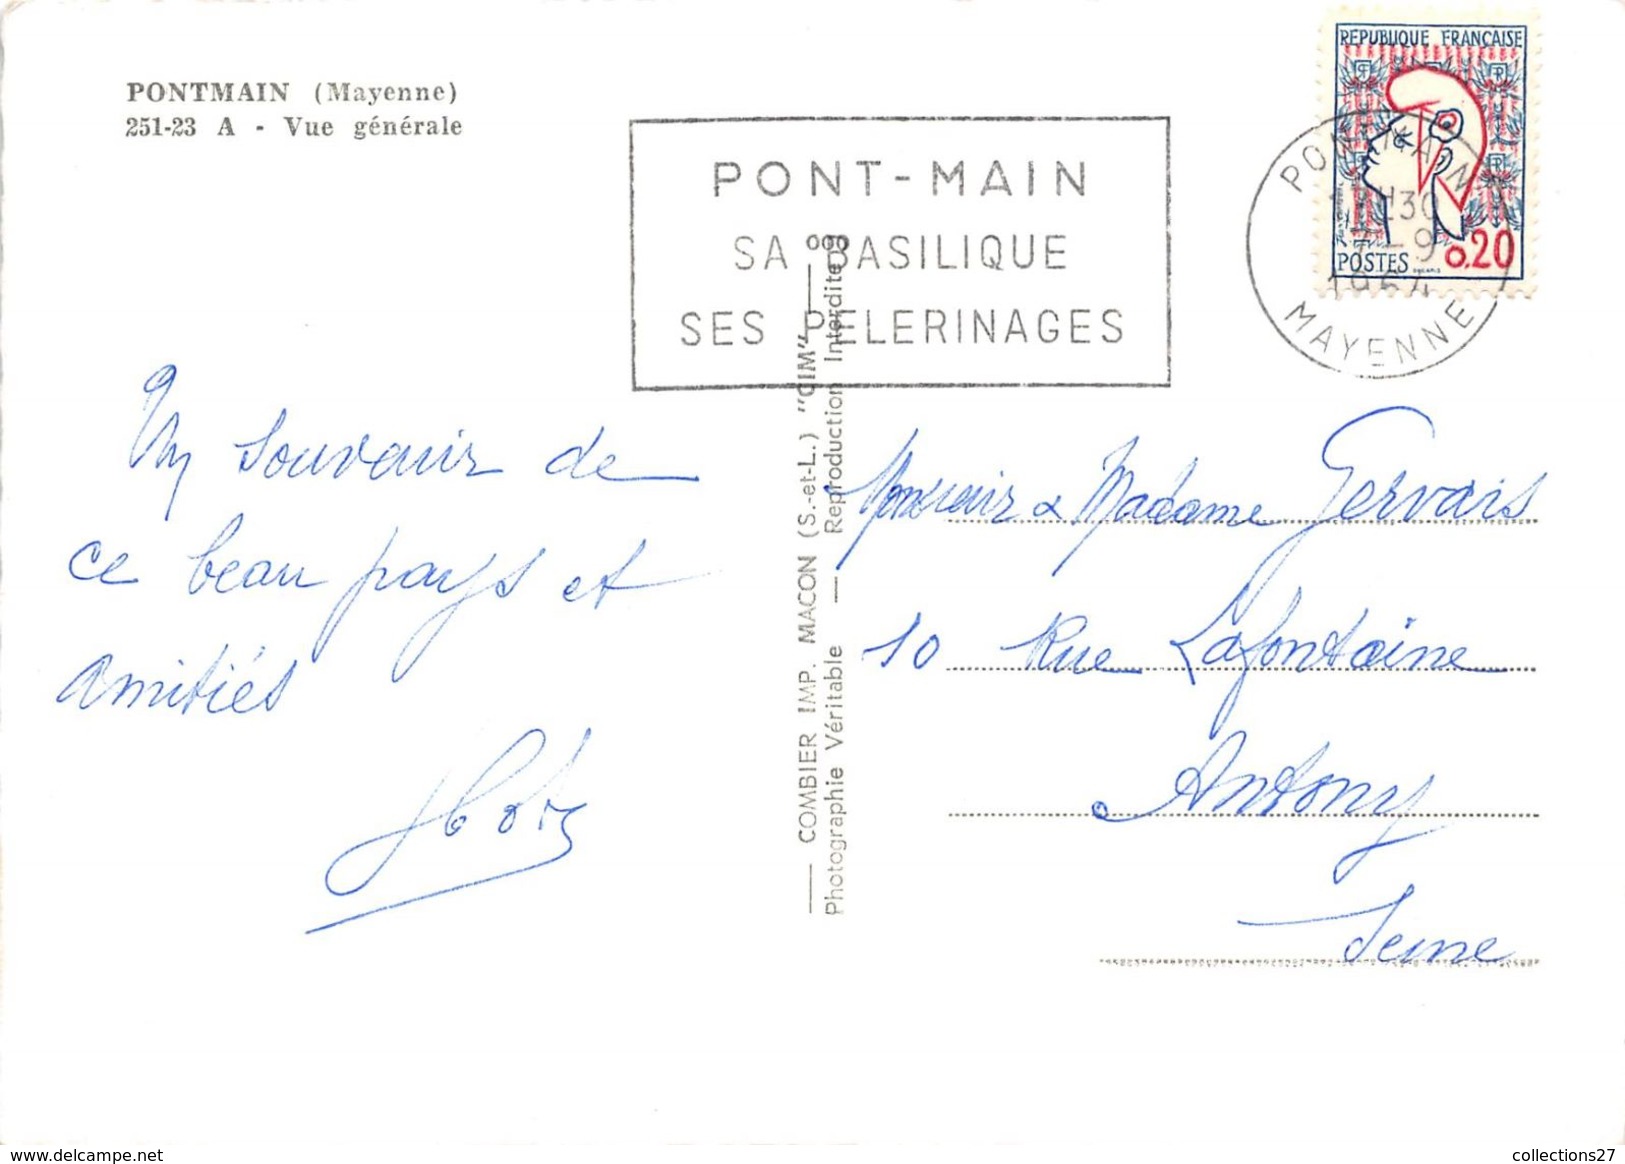 PONTMAIN (Mayenne)
251-23 A - Vue générale
PONT-MAIN
SA BASILIQUE
SES PELERINAGES
REPUBLIQUE FRANÇAISE
POSTES 0.20
PONTMAIN
H30
7-9
1964
MAYENNE
Un souvenir de
ce beau pays et
amitiés
COMBIER IMP. MACON (S.-et-L.) "CIM"
Photographie Véritable — Reproduction Interdite
Monsieur & Madame Gervais
10 Rue Lafontaine
Antony
Seine
www.delcampe.net
collections27